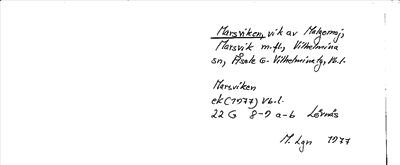 Marsviken, vik av Malgomaj,
Marsvik m.fl., Vilhelmina
sn, Åsele o. Vilhelmina tg, Vb.l.
Marsviken
ek (1977) Vb.l.
22 G 8-9 a-b Lövnäs
M. Lgn 1977